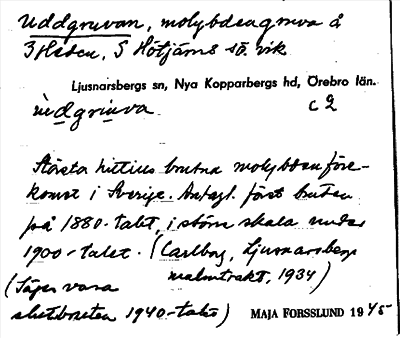 Uddgruvan, molybdengruva å
Heden, S Hötjärns sö. vik
Ljusnarsbergs sn, Nya Kopparbergs hd, Örebro län.
c 2
ùdgruva
Största hittills brutna molybdenföre-
komst i Sverige. Antagl. först bruten
på 1880-talet, i större skala under
1900-talet. (Carlborg, Ljusnarsbergs
malmtrakt, 1934)
(Säges vara
slutbruten 1940-talet)
MAJA FORSSLUND 1945